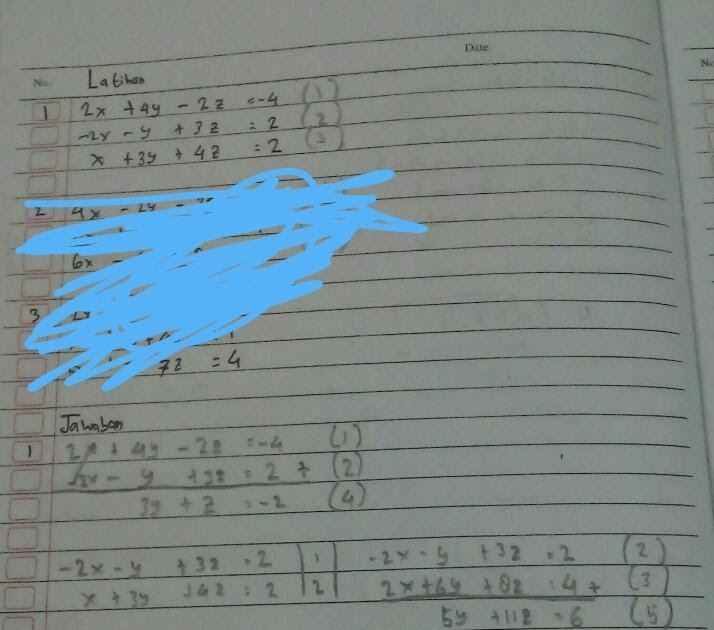 Date
No. Latihan
No
1 2x + 4y - 2z = -4 (1)
-2x - y + 3z = 2 (2)
x + 3y + 4z = 2 (3)
2 4x - 2y -
6x -
3
7z = 4
Jawaban
1 2x + 4y - 2z = -4 (1)
-2x - y + 3z = 2 + (2)
3y + z = -2 (4)
-2x - y + 3z = 2 | 1 | -2x - y + 3z = 2 (2)
x + 3y + 4z = 2 | 2 | 2x + 6y + 8z = 4 + (3)
5y + 11z = 6 (5)